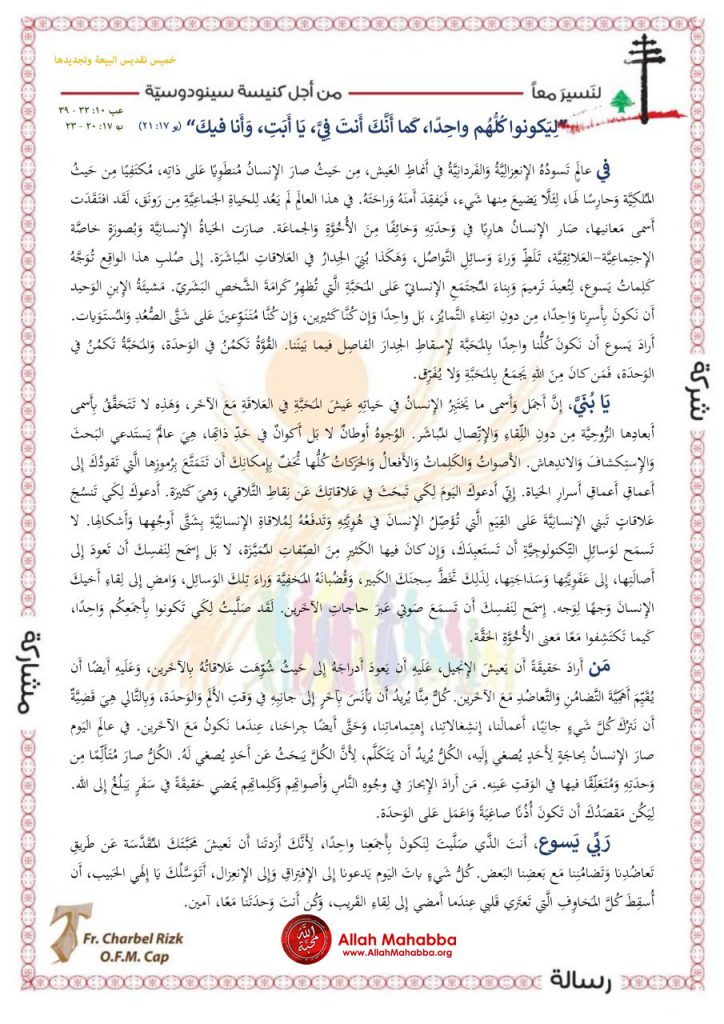 خميس تقديس البيعة وتجديدها
لنَسيرَ معاً
من أجل كنيسة سينودوسيّة
عب ١٠: ٣٢ - ٣٩
يو ١٧: ٢٠ - ٢٣
"لِيَكونوا كُلُّهُم واحِدًا، كَما أَنَّكَ أَنتَ فِيَّ، يَا أَبَتِ، وَأَنا فيكَ" (يو ١٧: ٢١)
في عالَمٍ تَسودُهُ الإِنعِزالِيَّةُ وَالفَردانِيَّةُ في أَنماطِ العَيش، مِن حَيثُ صارَ الإِنسانُ مُنطَوِيًا عَلى ذاتِه، مُكتَفِيًا مِن حَيثُ
المُلكِيَّةِ وَحارِسًا لَها، لِئَلَّا يَضيعَ مِنها شَيء، فَيَفقِدَ أَمنَهُ وَراحَتَهُ. في هذا العالَمِ لَم يَعُد لِلحَياةِ الجَماعِيَّةِ مِن رَونَق، لَقَد افتَقَدَت
أَسمى مَعانيها، صَار الإِنسانُ هارِبًا في وَحدَتِهِ وَخائِفًا مِنَ الأُخُوَّةِ وَالجَماعَة. صارَت الحَياةُ الإِنسانِيَّة وَبُصورَةٍ خاصَّة
الإِجتِماعِيَّة-العَلائِقِيَّة، تَلَطٍّ وَراءَ وَسائِلِ التَّواصُل، وَهَكَذا بُنِيَ الجِدارُ في العَلاقاتِ المُباشَرَة. إِلى صُلبِ هذا الواقِعِ تُوَجَّهُ
كَلِماتُ يَسوع، لِتُعيدَ تَرميمَ وَبِناءَ المُجتَمَعِ الإِنسانِيّ عَلى المَحَبَّةِ الَّتي تُظهِرُ كَرامَةَ الشَّخصِ البَشَرِيّ. مَشيئَةُ الإِبنِ الوَحيد
أَن نَكونَ بِأَسرِنا واحِدًا، مِن دونِ انتِفاءِ التَّمايُز، بَل واحِدًا وَإِن كُنَّا كَثيرين، وَإِن كُنَّا مُتَنَوِّعينَ عَلى شَتَّى الصُّعُدِ وَالمُستَوَيات.
أَرادَ يَسوع أَن نَكونَ كُلُّنا واحِدًا بِالمَحَبَّة لِإِسقاطِ الجِدارِ الفاصِلِ فيما بَينَنا. القُوَّةُ تَكمُنُ في الوَحدَة، وَالمَحَبَّةُ تَكمُنُ في
الوَحدَة، فَمَن كانَ مِنَ اللهِ يَجمَعُ بِالمَحَبَّةِ وَلا يُفَرِّق.
يَا بُنَيَّ، إِنَّ أَجمَلَ وَأَسمى ما يَختَبِرُ الإِنسانُ في حَياتِهِ عَيشَ المَحَبَّةِ في العَلاقَةِ مَعَ الآخَر، وَهَذِهِ لا تَتَحَقَّقُ بِأَسمى
أَبعادِها الرُّوحِيَّة مِن دونِ اللِّقاءِ وَالإِتِّصالِ المُباشَر. الوُجوهُ أَوطانٌ لا بَل أَكوانٌ في حَدِّ ذاتِها، هِيَ عالَمٌ يَستَدعي البَحثَ
وَالإِستِكشافَ وَالاندِهاش. الأَصواتُ وَالكَلِماتُ وَالأَفعالُ وَالحَرَكاتُ كُلُّها تُحَفٌ بِإِمكانِكَ أَن تَتَمَتَّعَ بِرُموزِها الَّتي تَقودُكَ إِلى
أَعماقِ أَعماقِ أَسرارِ الحَياة. إِنّي أَدعوكَ اليَومَ لِكَي تَبحَثَ في عَلاقاتِكَ عَن نِقاطِ التَّلاقي، وَهِيَ كَثيرَة. أَدعوكَ لِكَي تَنسُجَ
عَلاقاتٍ تَبني الإِنسانِيَّةَ عَلى القِيَمِ الَّتي تُؤَصِّلُ الإِنسانَ في هُوِيَّتِهِ وَتَدفَعُهُ لِمُلاقاةِ الإِنسانِيَّةِ بِشَتَّى أَوجُهِها وَأَشكالِها. لا
تَسمَح لِوَسائِلِ التِّكنولوجِيَّةِ أَن تَستَعبِدَكَ، وَإِن كانَ فيها الكَثيرُ مِنَ الصِّفاتِ المُمَيَّزَة، لا بَل إِسمَح لِنَفسِكَ أَن تَعودَ إِلى
أَصالَتِها، إِلى عَفَوِيَّتِها وَسَذاجَتِها، لِذَلِكَ تَخَطَّ سِجنَكَ الكَبير، وَقُضبانَهُ المَخفِيَّة وَراءَ تِلكَ الوَسائِل، وَامضِ إِلى لِقاءِ أَخيكَ
الإِنسان وَجهًا لِوَجه. إِسمَح لِنَفسِكَ أَن تَسمَعَ صَوتي عَبرَ حاجاتِ الآخَرين. لَقَد صَلَّيتُ لِكَي تَكونوا بِأَجمَعِكُم واحِدًا،
كَيما تَكتَشِفوا مَعًا مَعنى الأُخُوَّةِ الحَقَّة.
مَن أَرادَ حَقيقَةً أَن يَعيشَ الإِنجيل، عَلَيهِ أَن يَعودَ أَدراجَهُ إِلى حَيثُ شُوِّهَت عَلاقاتُهُ بِالآخَرين، وَعَلَيهِ أَيضًا أَن
يُقَيِّمَ أَهَمِّيَّةَ التَّضامُنِ وَالتَّعاضُدِ مَعَ الآخَرين. كُلٌّ مِنَّا يُريدُ أَن يَأنَسَ بِآخَرٍ إِلى جانِبِهِ في وَقتِ الأَلَمِ وَالوَحدَة، وَبِالتَّالي هِيَ قَضِيَّةُ
أَن نَترُكَ كُلَّ شَيءٍ جانِبًا، أَعمالَنا، إِنشِغالاتِنا، إِهتِماماتِنا، وَحَتَّى أَيضًا جِراحَنا، عِندَما نَكونُ مَعَ الآخَرين. في عالَمِ اليَوم
صارَ الإِنسانُ بِحاجَةٍ لِأَحَدٍ يُصغي إِلَيه، الكُلُّ يُريدُ أَن يَتَكَلَّم، لِأَنَّ الكُلَّ يَبحَثُ عَن أَحَدٍ يُصغي لَهُ. الكُلُّ صارَ مُتَأَلِّمًا مِن
وَحدَتِهِ وَمُتَعَلِّقًا فيها في الوَقتِ عَينِه. مَن أَرادَ الإِبحارَ في وُجوهِ النَّاسِ وَأَصواتِهِم وَكَلِماتِهِم يَمضي حَقيقَةً في سَفَرٍ يَبلُغُ إِلى الله.
لِيَكُن مَقصَدُكَ أَن تَكونَ أُذُنًا صاغِيَةً وَاعمَل عَلى الوَحدَة.
رَبِّي يَسوع، أَنتَ الَّذي صَلَّيتَ لِنَكونَ بِأَجمَعِنا واحِدًا، لِأَنَّكَ أَرَدتَنا أَن نَعيشَ مَحَبَّتَكَ المُقَدَّسَة عَن طَريقِ
تَعاضُدِنا وَتَضامُنِنا مَع بَعضِنا البَعض. كُلُّ شَيءٍ باتَ اليَومَ يَدعونا إِلى الإِفتِراقِ وَإِلى الإِنعِزال، أَتَوَسَّلُكَ يَا إِلَهِي الحَبيب، أَن
أُسقِطَ كُلَّ المَخاوِفِ الَّتي تَعتَري قَلبي عِندَما أَمضي إِلى لِقاءِ القَريب، وَكُن أَنتَ وَحدَتَنا مَعًا، آمين.
شركة
مشاركة
رسالة
Fr. Charbel Rizk
O.F.M. Cap
الله محبّة
Allah Mahabba
www.AllahMahabba.org